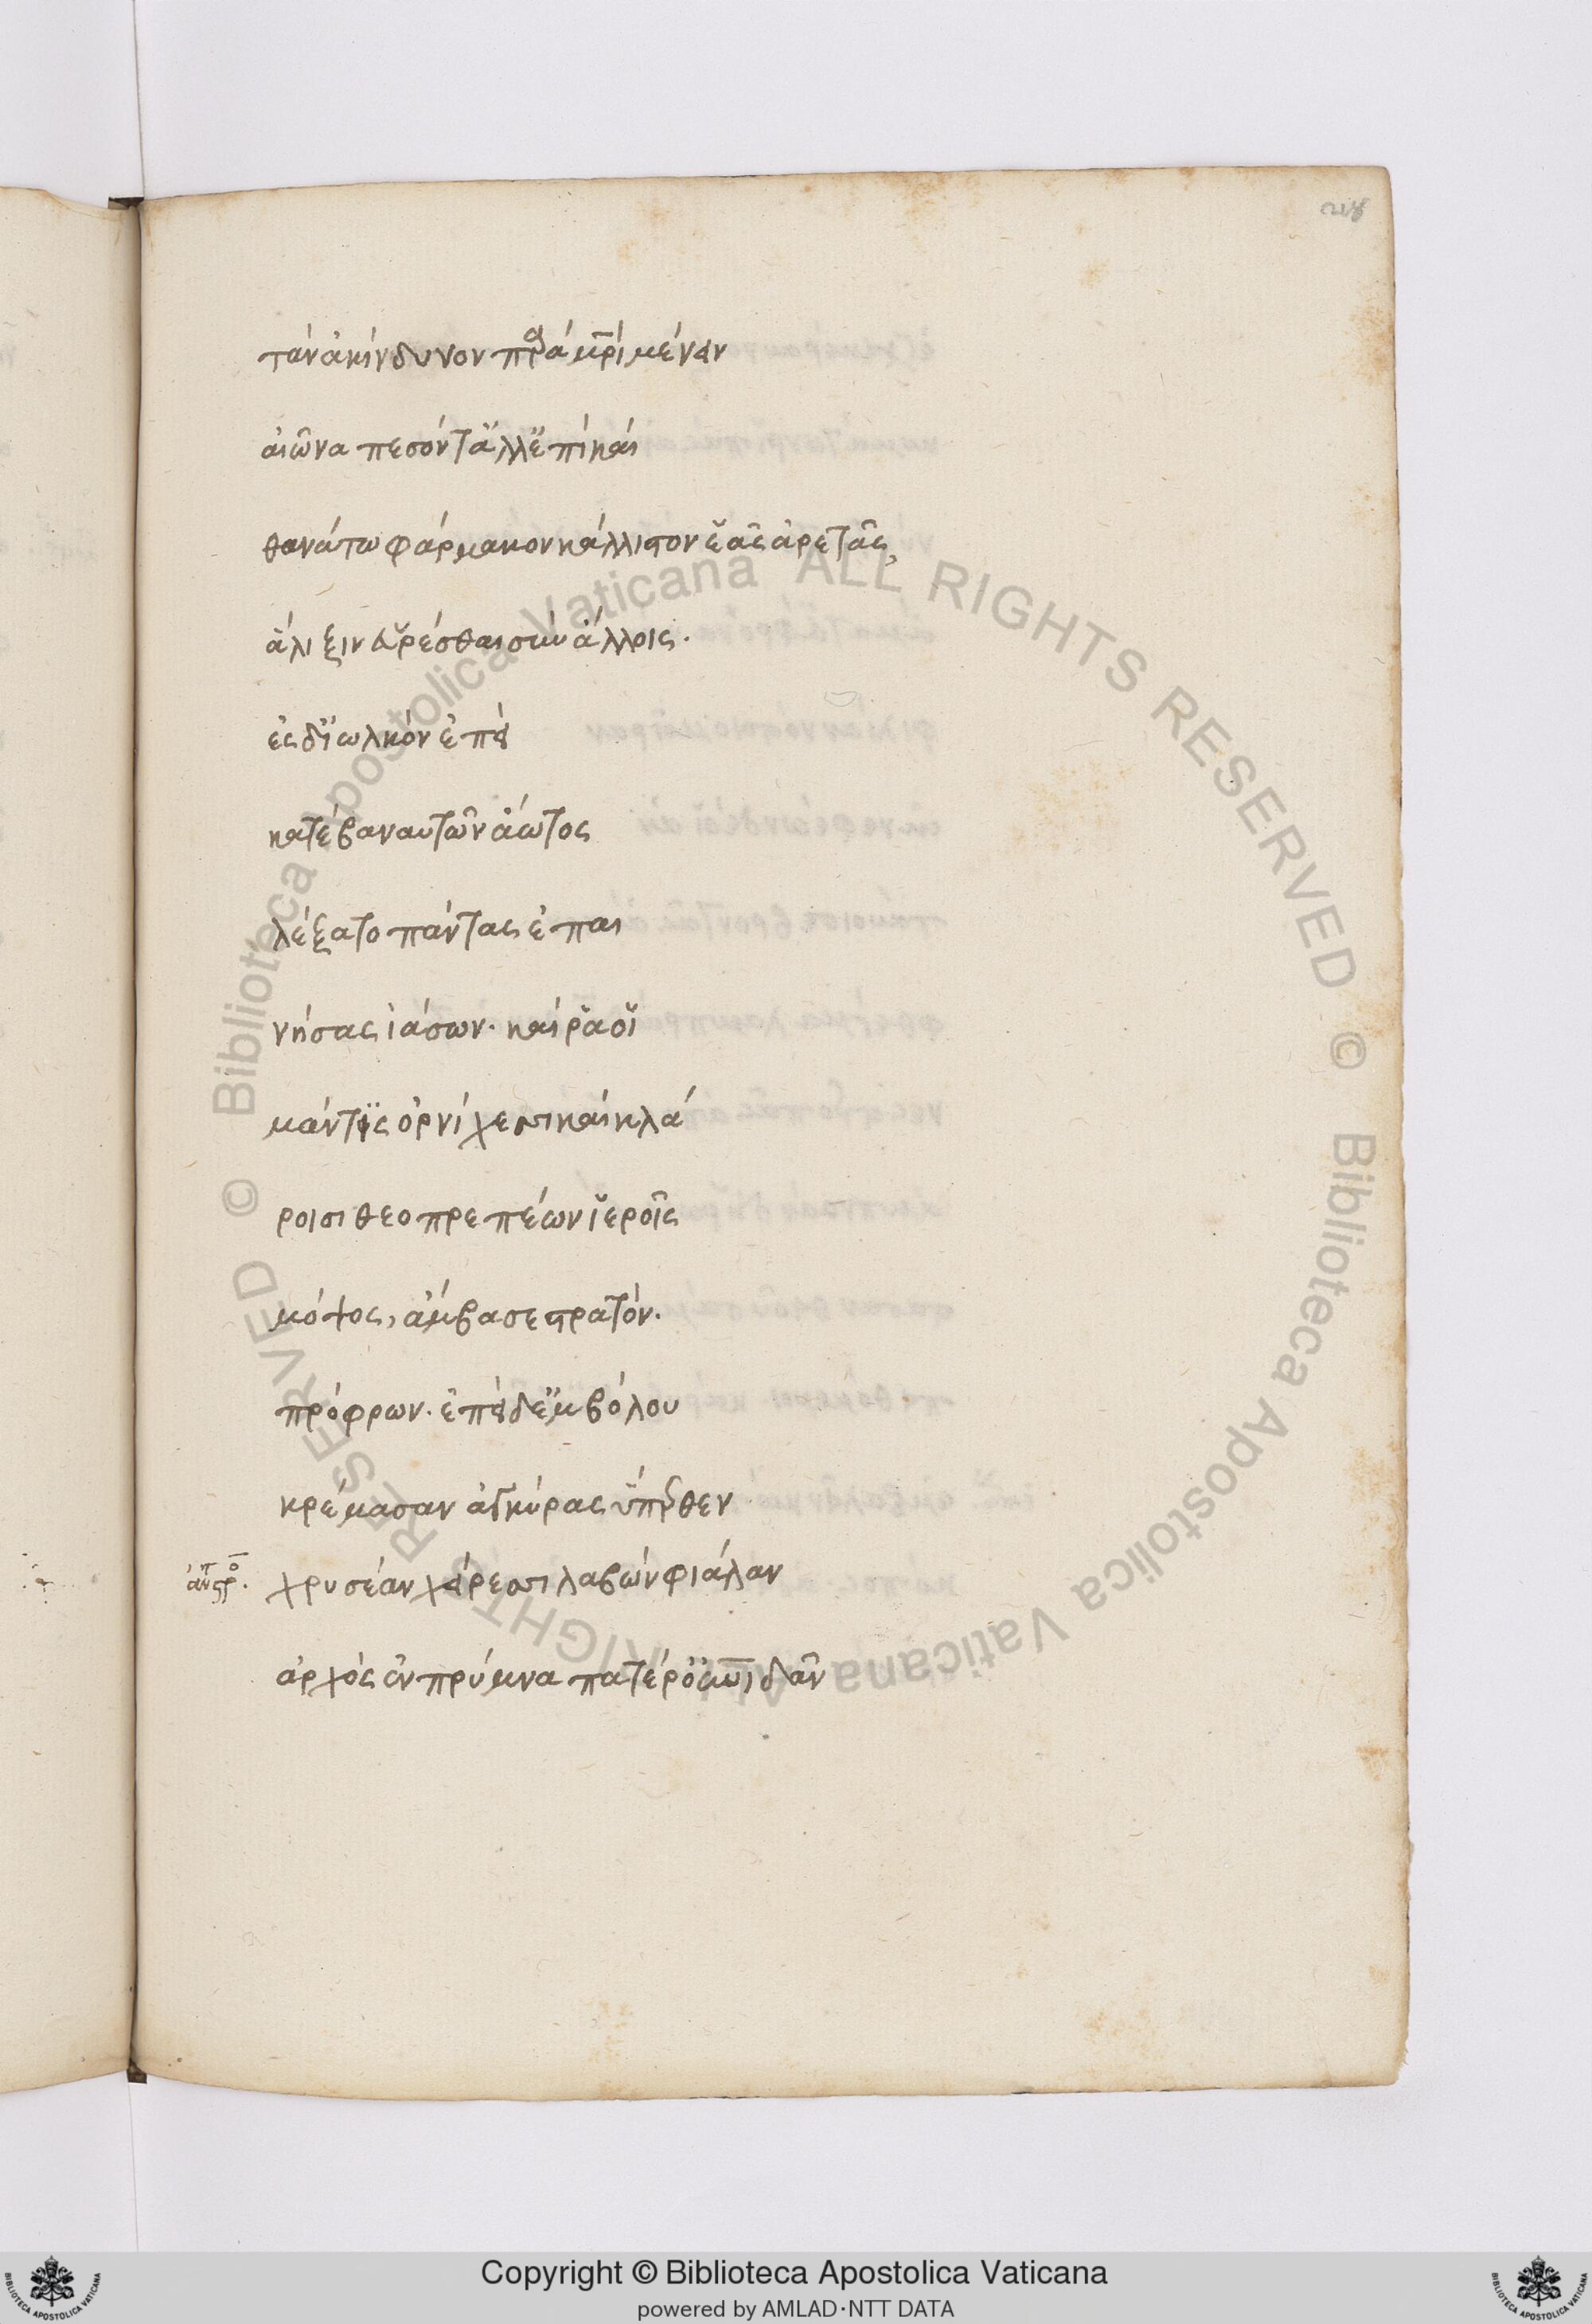 218
τὰν ἀκίνδυνον παρὰ μητρὶ μένειν
αἰῶνα πεσόντ' ἀλλ' ἐπὶ καὶ
θανάτω φάρμακον κάλλιστον ἑᾶς ἀρετᾶς,
ἅλιξιν εὑρέσθαι σὺν ἄλλοις.
ἐς δ' ἰωλκὸν ἐπεὶ
κατέβα ναυτῶν ἄωτος
λέξατο πάντας ἐπαι
νήσας ἰάσων. καὶ ῥά οἱ
μάντις ὀρνίχεσσι καὶ κλά
ροισι θεοπρεπέων ἱεροῖς
μόψος, ἄμβασε στρατὸν.
πρόφρων. ἐπεὶ δ' ἐμβόλου
κρέμασαν ἀγκύρας ὕπερθεν
ἀντιστρο. χρυσέαν χείρεσσι λαβὼν φιάλαν
ἀρχὸς ἐν πρύμνα πατέρ' οὐρανιδᾶν
© Biblioteca Apostolica Vaticana ALL RIGHTS RESERVED © Biblioteca Apostolica Vaticana ALL RIGHTS RESERVED
Copyright © Biblioteca Apostolica Vaticana
powered by AMLAD·NTT DATA